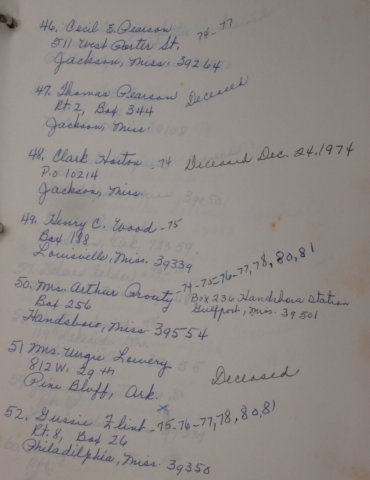 46. Cecil S. Pearson 74-77
511 West Porter St.
Jackson, Miss. 39264
47. Thomas Pearson Deceased
Rt. 2, Box 344
Jackson, Miss.
48. Clark Horton -74 Deceased Dec. 24, 1974
P.O. 10214
Jackson, Miss.
49. Henry C. Wood -75
Box 188
Louisville, Miss. 39339
50. Mrs. Arthur Prouty -74-75-76-77,78,80,81
Box 256 Box 236 Handsboro Station
Handsboro, Miss 39554 Gulfport, Miss. 39501
51 Mrs. Lowery
812 W. 29th Deceased
Pine Bluff, Ark.
52. Gussie Flint -75-76-77,78,80,81
Rt. 8, Box 26
Philadelphia, Miss. 39350